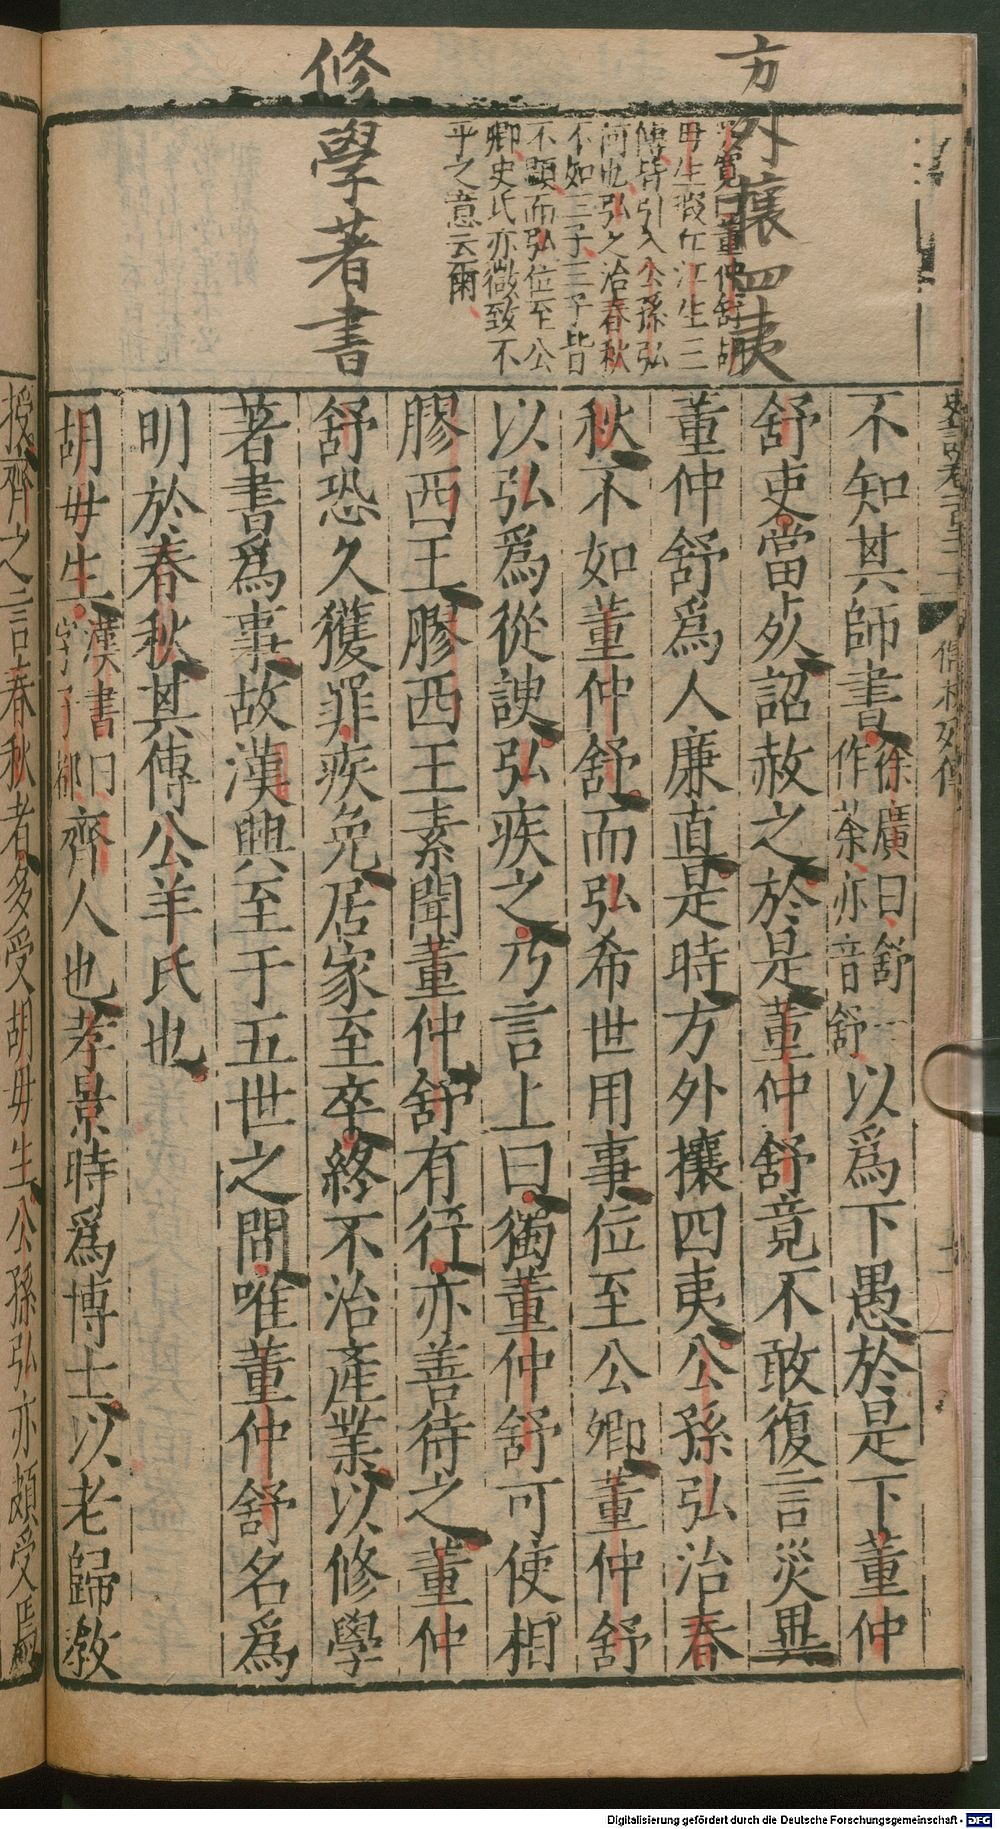 方外攘四夷
修學著書
覽曰董仲舒胡
毋生瑕丘江生三
傳皆引入公孫弘
何也弘之治春秋
不如三子三子皆
不顯而弘位至公
卿史氏亦微致不
平之意云爾
史記卷一百二十一 儒林列傳
不知其師書徐廣曰舒一作荼亦音舒以爲下愚於是下董仲
舒吏當死詔赦之於是董仲舒竟不敢復言災異
董仲舒爲人廉直是時方外攘四夷公孫弘治春
秋不如董仲舒而弘希世用事位至公卿董仲舒
以弘爲從諛弘疾之乃言上曰獨董仲舒可使相
膠西王膠西王素聞董仲舒有行亦善待之董仲
舒恐久獲罪疾免居家至卒終不治產業以修學
著書爲事故漢興至于五世之間唯董仲舒名爲
明於春秋其傳公羊氏也
胡毋生漢書曰字子都齊人也孝景時爲博士以老歸教
授齊之言春秋者多受胡毋生公孫弘亦頗受焉
Digitalisierung gefördert durch die Deutsche Forschungsgemeinschaft - DFG